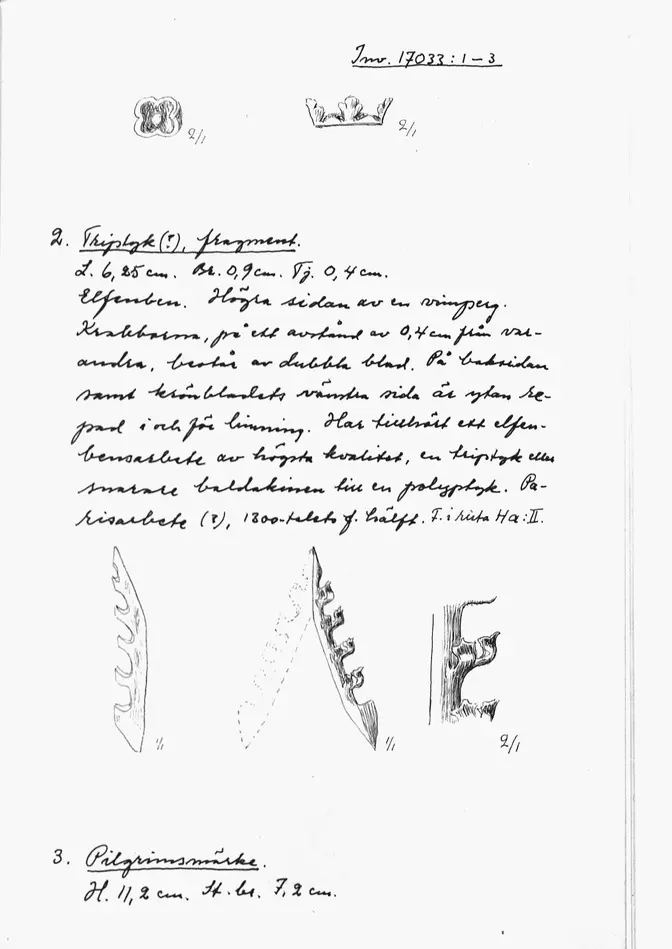 Inv. 17033:1-3
2/1
2/1
2. Triptyk (?), fragment.
L. 6,25 cm. Br. 0,9 cm. Tj. 0,4 cm.
Elfenben. Högra sidan av en vimperg.
Krabborna, på ett avstånd av 0,4 cm från var-
andra, består av dubbla blad. På baksidan
samt krönbladets vänstra sida är ytan re-
pad i och för limning. Har tillhört ett elfen-
bensarbete av högsta kvalitet, en triptyk eller
snarare baldakinen till en polyptyk. Pa-
risarbete (?), 1300-talets f. hälft. F. i ruta Ha:II.
1/1
1/1
2/1
3. Pilgrimsmärke.
H. 11,2 cm. St. br. 7,2 cm.